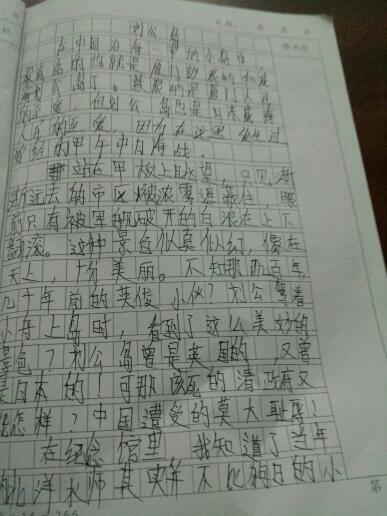 日期： 年 月 日
刘公岛
在中国沿海一带的小岛屿，
最著名的当就是厦门的鼓浪屿和威
海刘公岛了。鼓浪屿是厦门人民
的最爱，而刘公岛当是日本威海
人民的最爱。因为在这里发生过
著名的甲午中日海战。
那站在甲板上眺望，只见渐
渐远去的市区被浓雾遮蔽住，眼
前只有被军舰破开的白浪在上下
翻滚。这种景色似真似幻，像在
天上，十分美丽。不知那西百年
九十年前的英俊小伙？刘公驾着
小舟上岛时，看到了这么美妙的
景色？刘公岛曾是英国的，又曾
是日本的！可那该死的清政府又
能怎样？中国遭受的莫大耻辱！
在纪念馆里，我知道了当年
的北洋水师其实并不比狗日的小
第